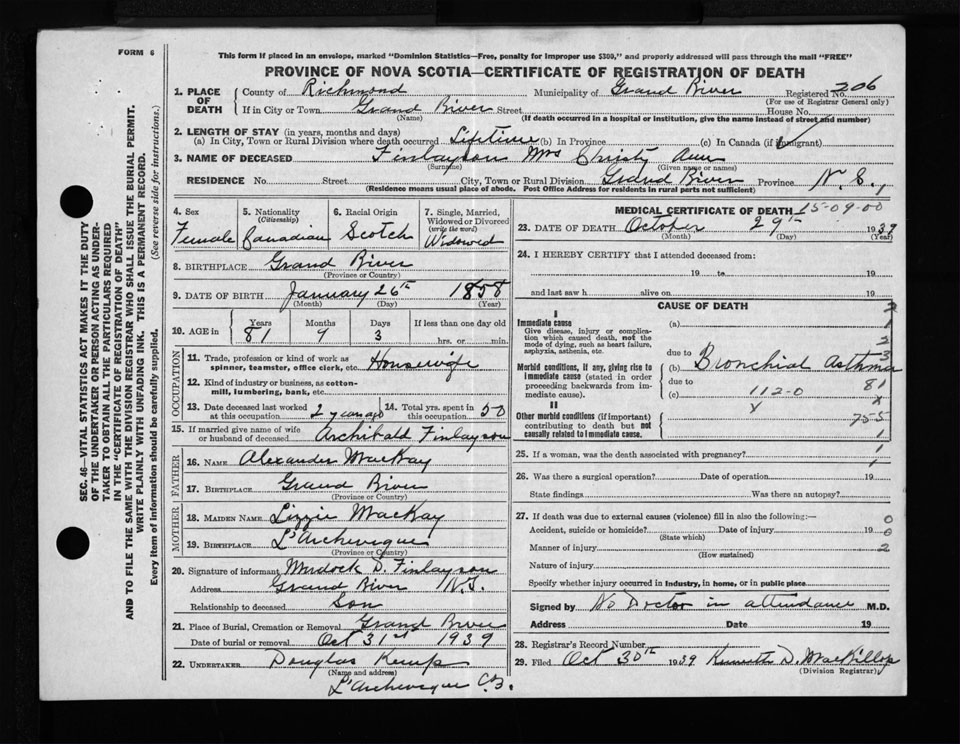 FORM 6
This form if placed in an envelope, marked "Dominion Statistics—Free, penalty for improper use $300," and properly addressed will pass through the mail "FREE"
PROVINCE OF NOVA SCOTIA—CERTIFICATE OF REGISTRATION OF DEATH
SEC. 46—VITAL STATISTICS ACT MAKES IT THE DUTY
OF THE UNDERTAKER OR PERSON ACTING AS UNDER-
TAKER TO OBTAIN ALL THE PARTICULARS REQUIRED
IN THE "CERTIFICATE OF REGISTRATION OF DEATH"
AND TO FILE THE SAME WITH THE DIVISION REGISTRAR WHO SHALL ISSUE THE BURIAL PERMIT.
WRITE PLAINLY WITH UNFADING INK. THIS IS A PERMANENT RECORD.
Every item of information should be carefully supplied. (See reverse side for instructions.)
1. PLACE OF DEATH County of Richmond Municipality of Grand River Registered No. 206
(For use of Registrar General only)
If in City or Town Grand River Street House No.
(Name) (If death occurred in a hospital or institution, give the name instead of street and number)
2. LENGTH OF STAY (in years, months and days)
(a) In City, Town or Rural Division where death occurred Lifetime (b) In Province (c) In Canada (if immigrant)
3. NAME OF DECEASED Finlayson Mrs Christy Ann
(Surname) (Given name or names)
RESIDENCE No. Street City, Town or Rural Division Grand River Province N.S.
(Residence means usual place of abode. Post Office Address for residents in rural parts not sufficient)
4. Sex Female
5. Nationality (Citizenship) Canadian
6. Racial Origin Scotch
7. Single, Married, Widowed or Divorced (write the word) Widowed
8. BIRTHPLACE Grand River
(Province or Country)
9. DATE OF BIRTH January 26th 1858
(Month) (Day) (Year)
10. AGE in Years 81 Months 9 Days 3 If less than one day old hrs. or min.
OCCUPATION
11. Trade, profession or kind of work as spinner, teamster, office clerk, etc. Housewife
12. Kind of industry or business, as cotton-mill, lumbering, bank, etc.
13. Date deceased last worked at this occupation 2 years ago 14. Total yrs. spent in this occupation 50
15. If married give name of wife or husband of deceased Archibald Finlayson
FATHER
16. NAME Alexander MacKay
17. BIRTHPLACE Grand River
(Province or Country)
MOTHER
18. MAIDEN NAME Lizzie MacKay
19. BIRTHPLACE L'Archeveque
(Province or Country)
20. Signature of informant Murdock D. Finlayson
Address Grand River N.S.
Relationship to deceased Son
21. Place of Burial, Cremation or Removal Grand River
Date of burial or removal Oct 31st 1939
22. UNDERTAKER Douglas Kemp
(Name and address)
L'Archeveque C.B.
MEDICAL CERTIFICATE OF DEATH 15-09-00
23. DATE OF DEATH October 29th 1939
(Month) (Day) (Year)
24. I HEREBY CERTIFY that I attended deceased from:
19 to 19
and last saw h alive on 19
CAUSE OF DEATH
I
Immediate cause
Give disease, injury or complication which caused death, not the mode of dying, such as heart failure, asphyxia, asthenia, etc.
(a)
due to
Morbid conditions, if any, giving rise to immediate cause (stated in order proceeding backwards from immediate cause).
(b) Bronchial Asthma
due to
(c) 112-0
II
Other morbid conditions (if important) contributing to death but not causally related to immediate cause.
2
1
2
3
81
x
75-5
1
25. If a woman, was the death associated with pregnancy? 1
26. Was there a surgical operation? Date of operation 19
State findings Was there an autopsy?
27. If death was due to external causes (violence) fill in also the following:— 0
Accident, suicide or homicide? Date of injury 19 0
(State which)
Manner of injury 2
(How sustained)
Nature of injury
Specify whether injury occurred in industry, in home, or in public place
Signed by No Doctor in attendance M.D.
Address Date 19
28. Registrar's Record Number
29. Filed Oct 30th 1939 Kenneth D. MacKillop
(Division Registrar)